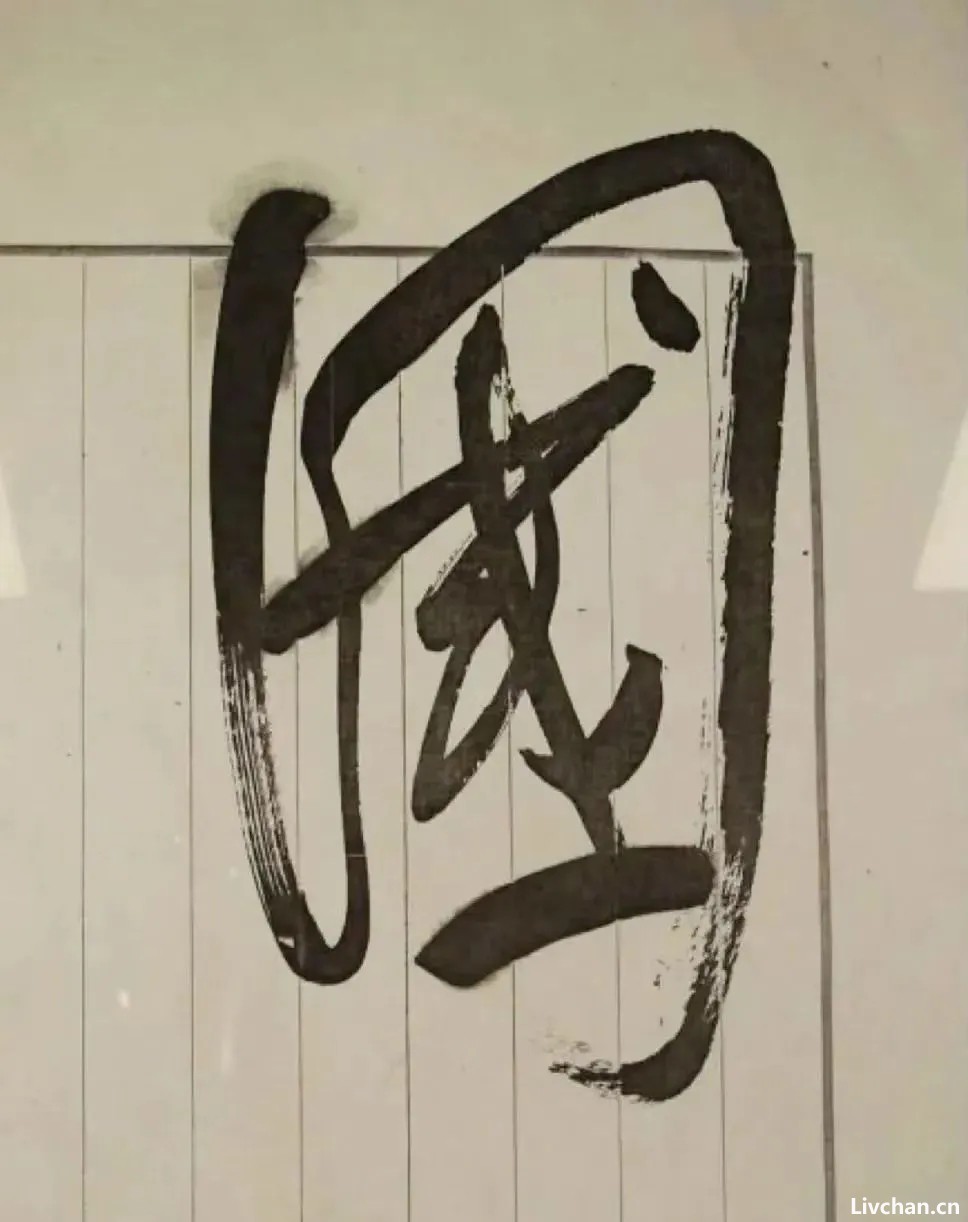 國
Livchan.cn